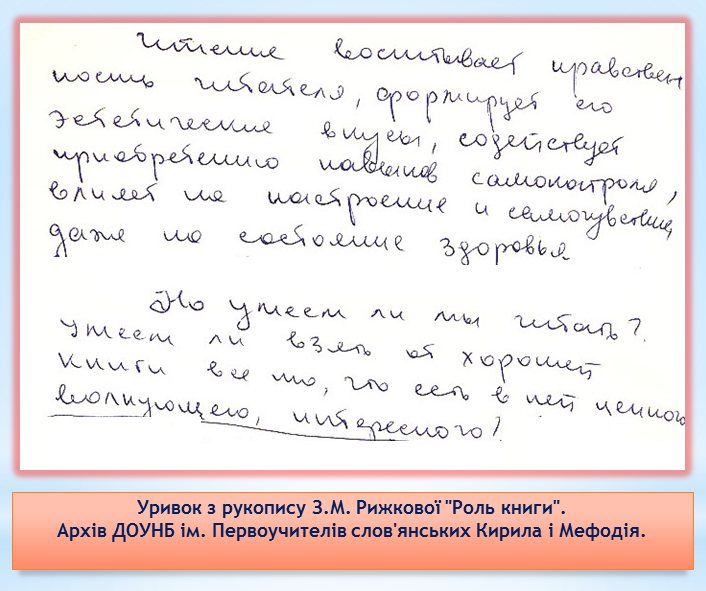 Чтение воспитывает нравствен
ность читателя, формирует его
эстетические вкусы, содействует
приобретению навыков самоконтроля,
влияет на настроение и самочувствие,
даже на состояние здоровья.
Но умеем ли мы читать?
Умеем ли взять от хорошей
книги все то, что есть в ней ценного
волнующего, интересного?
Уривок з рукопису З.М. Рижкової "Роль книги".
Архів ДОУНБ ім. Первоучителів слов'янських Кирила і Мефодія.